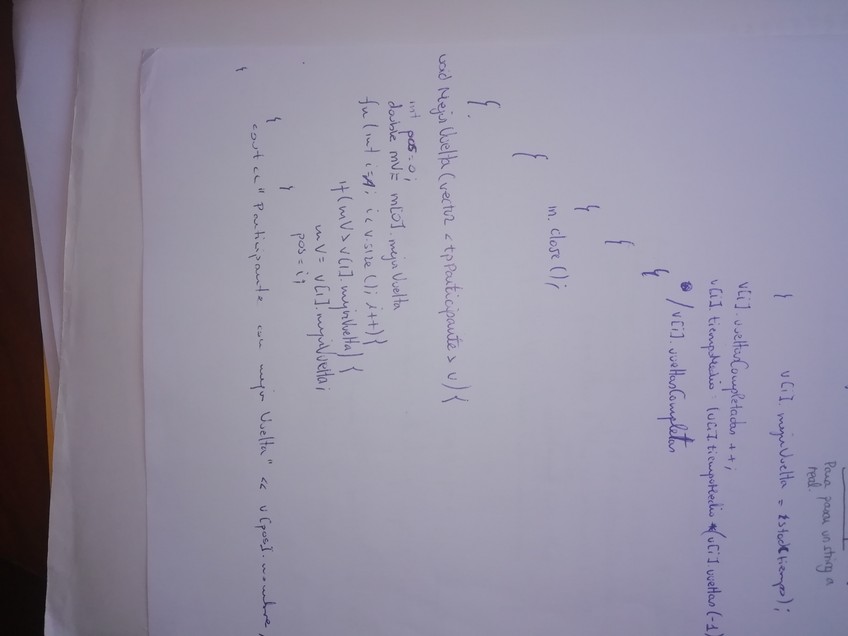 Para pasar un string a
real.
v[i].mejorVuelta = stod(tiempo);
}
v[i].vueltasCompletadas ++;
v[i].tiempoMedio = (v[i].tiempoMedio * (v[i].vueltas(-1)
/ v[i].vueltasCompletas
}
}
}
in.close();
}
}.
void MejorVuelta (vector <tpParticipante> v) {
int pos=0;
double mV= m[0].mejorVuelta
for (int i=1; i< v.size(); i++) {
if (mV > v[i].mejorVuelta) {
mV = v[i].mejorVuelta;
pos = i;
}
}
cout << "Participante con mejor Vuelta" << v[pos].nombre
}